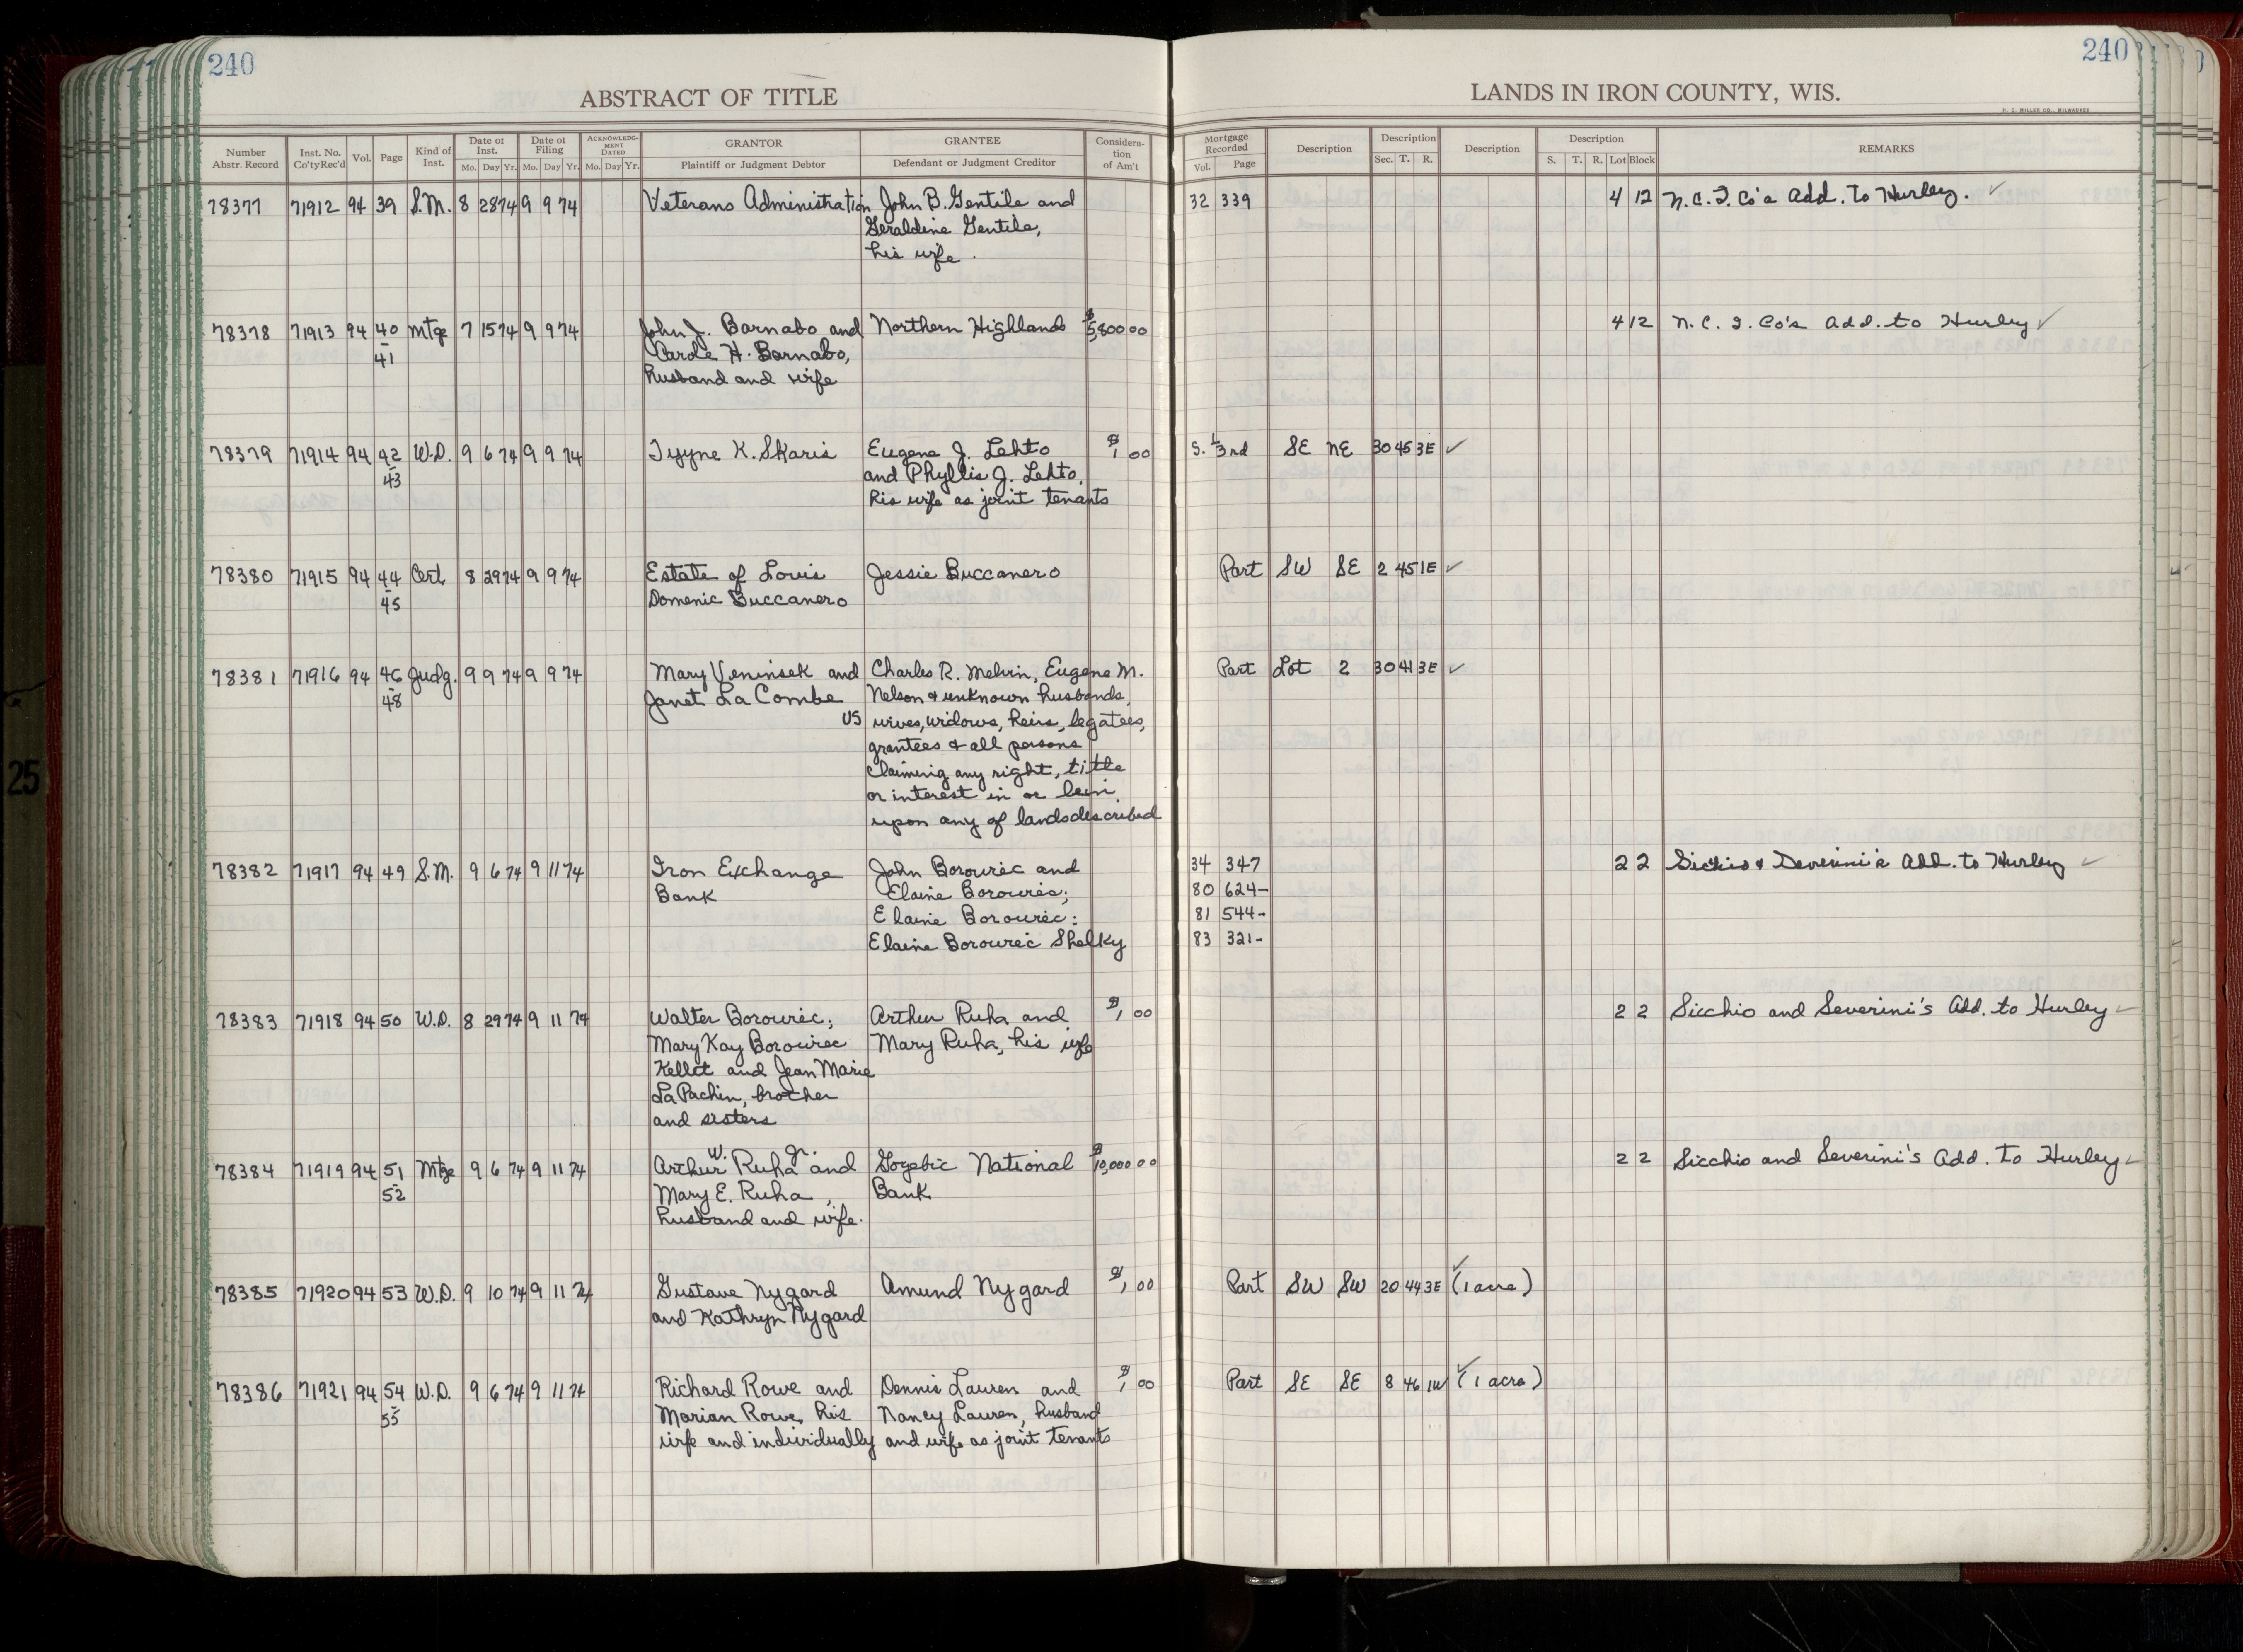 240
240
ABSTRACT OF TITLE
LANDS IN IRON COUNTY, WIS.
H. C. MILLER CO., MILWAUKEE
Number Abstr. Record
Inst. No. Co'ty Rec'd
Vol.
Page
Kind of Inst.
Date of Inst. Mo. Day Yr.
Date of Filing Mo. Day Yr.
ACKNOWLEDGMENT DATED Mo. Day Yr.
GRANTOR Plaintiff or Judgment Debtor
GRANTEE Defendant or Judgment Creditor
Consideration of Am't
Mortgage Recorded Vol. Page
Description
Description Sec. T. R.
Description
Description S. T. R. Lot Block
REMARKS
78377 71912 94 39 S.M. 8 28 74 9 9 74 Veterans Administration John B. Gentile and 32 339 4 12 N.C.I. Co's Add. to Hurley. ✓
Geraldine Gentile,
his wife.
78378 71913 94 40 Mtge 7 15 74 9 9 74 John J. Barnabo and Northern Highlands $5,800 00 4 12 N.C.I. Co's Add. to Hurley ✓
- 41 Carole H. Barnabo,
husband and wife
78379 71914 94 42 W.D. 9 6 74 9 9 74 Tyyne K. Skaris Eugene J. Lehto $1 00 S. 1/3rd SE NE 30 45 3E ✓
- 43 and Phyllis J. Lehto,
his wife as joint tenants
78380 71915 94 44 Cert. 8 29 74 9 9 74 Estate of Louis Jessie Buccanero Part SW SE 2 45 1E ✓
- 45 Domenic Buccanero
78381 71916 94 46 Judg. 9 9 74 9 9 74 Mary Veninsek and Charles R. Melvin, Eugene M. Part Lot 2 30 41 3E ✓
- 48 Janet La Combe Nelson & unknown husbands,
vs wives, widows, heirs, legatees,
grantees & all persons
claiming any right, title
or interest in or lein
upon any of lands described
78382 71917 94 49 S.M. 9 6 74 9 11 74 Iron Exchange John Borowiec and 34 347 2 2 Sicchio & Severini's Add. to Hurley ✓
Bank Elaine Borowiec; 80 624-
Elaine Borowiec: 81 544-
Elaine Borowiec Shelky 83 321-
78383 71918 94 50 W.D. 8 29 74 9 11 74 Walter Borowiec; Arthur Ruha and $1 00 2 2 Sicchio and Severini's Add. to Hurley ✓
Mary Kay Borowiec Mary Ruha, his wife
Kellet and Jean Marie
La Pachin, brother
and sisters
78384 71919 94 51 Mtge 9 6 74 9 11 74 Arthur W. Ruha Jr. and Gogebic National $10,000 00 2 2 Sicchio and Severini's Add. to Hurley ✓
- 52 Mary E. Ruha, Bank
husband and wife.
78385 71920 94 53 W.D. 9 10 74 9 11 74 Gustave Nygard Amund Nygard $1 00 Part SW SW 20 44 3E ✓ (1 acre)
and Kathryn Nygard
78386 71921 94 54 W.D. 9 6 74 9 11 74 Richard Rowe and Dennis Lauren and $1 00 Part SE SE 8 46 1W ✓ (1 acre)
- 55 Marian Rowe, his Nancy Lauren, husband
wife and individually and wife as joint tenants
25